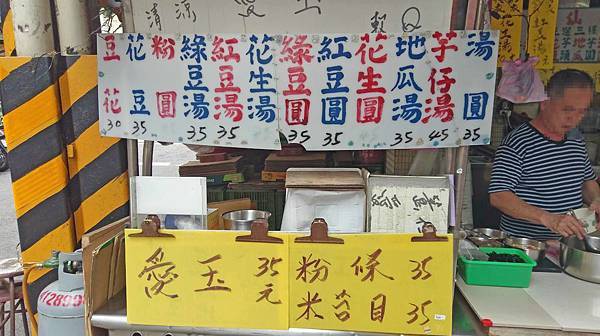 清涼 愛玉 軟Q
豆花 30
花豆 35
粉圓
綠豆湯 35
紅豆湯 35
花生湯 35
綠豆圓 35
紅豆圓 35
花生圓 35
地瓜湯 35
芋仔湯 45
湯圓 35
愛玉 35元
粉條 35
米苔目 35